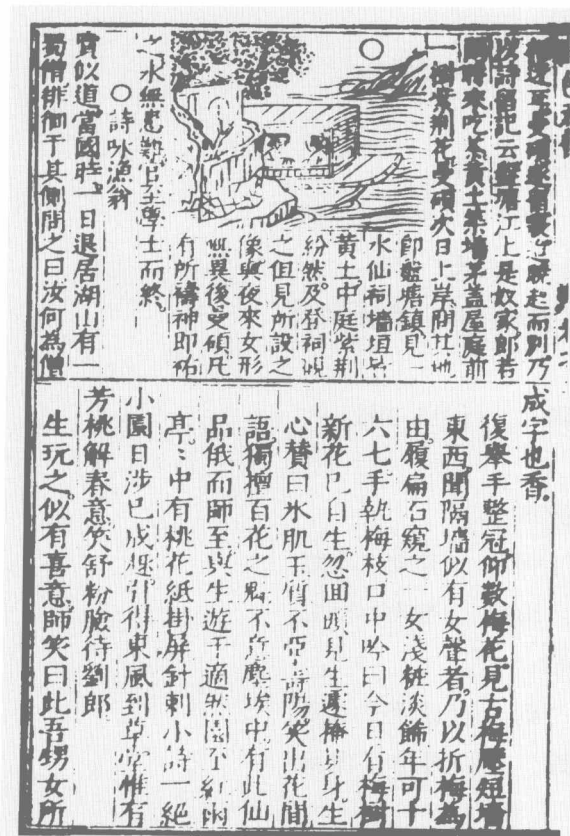 以詩留記云盤塘江上是奴家郎若
閒時來吃茶黃土築墻茅蓋屋庭前
一樹紫荊花曼碩次日上岸問其地
即盤塘鎮見一
水仙祠墻垣皆
黃土中庭紫荊
紛然及登祠視
之但見所設之
像與夜來女形
無異後曼碩凡
有所禱神即祐
之水無患難至學士而終
○詩咏漁翁
賈似道當國時一日退居湖山有一
蜀僧徘徊于其側問之曰汝何為僧
成字也香。
復舉手整冠仰數梅花見古梅壓短墻
東西聞隔墻似有女聲者乃以折梅為
由履扁石窺之一女淺粧淡飾年可十
六七手執梅枝口中吟曰今日有梅樹
新花已自生忽回頭見生遽掩其身生
心賛曰氷肌玉質不亞壽陽笑出花間
語獨擅百花之魁不意塵埃中有此仙
品俄而師至與生遊于適然園至紅雨
亭亭中有桃花紙掛屏針刺小詩一絕
小園日涉已成趣引得東風到草堂惟有
芳桃解春意笑舒粉臉待劉郎
生玩之似有喜意師笑曰此吾甥女所